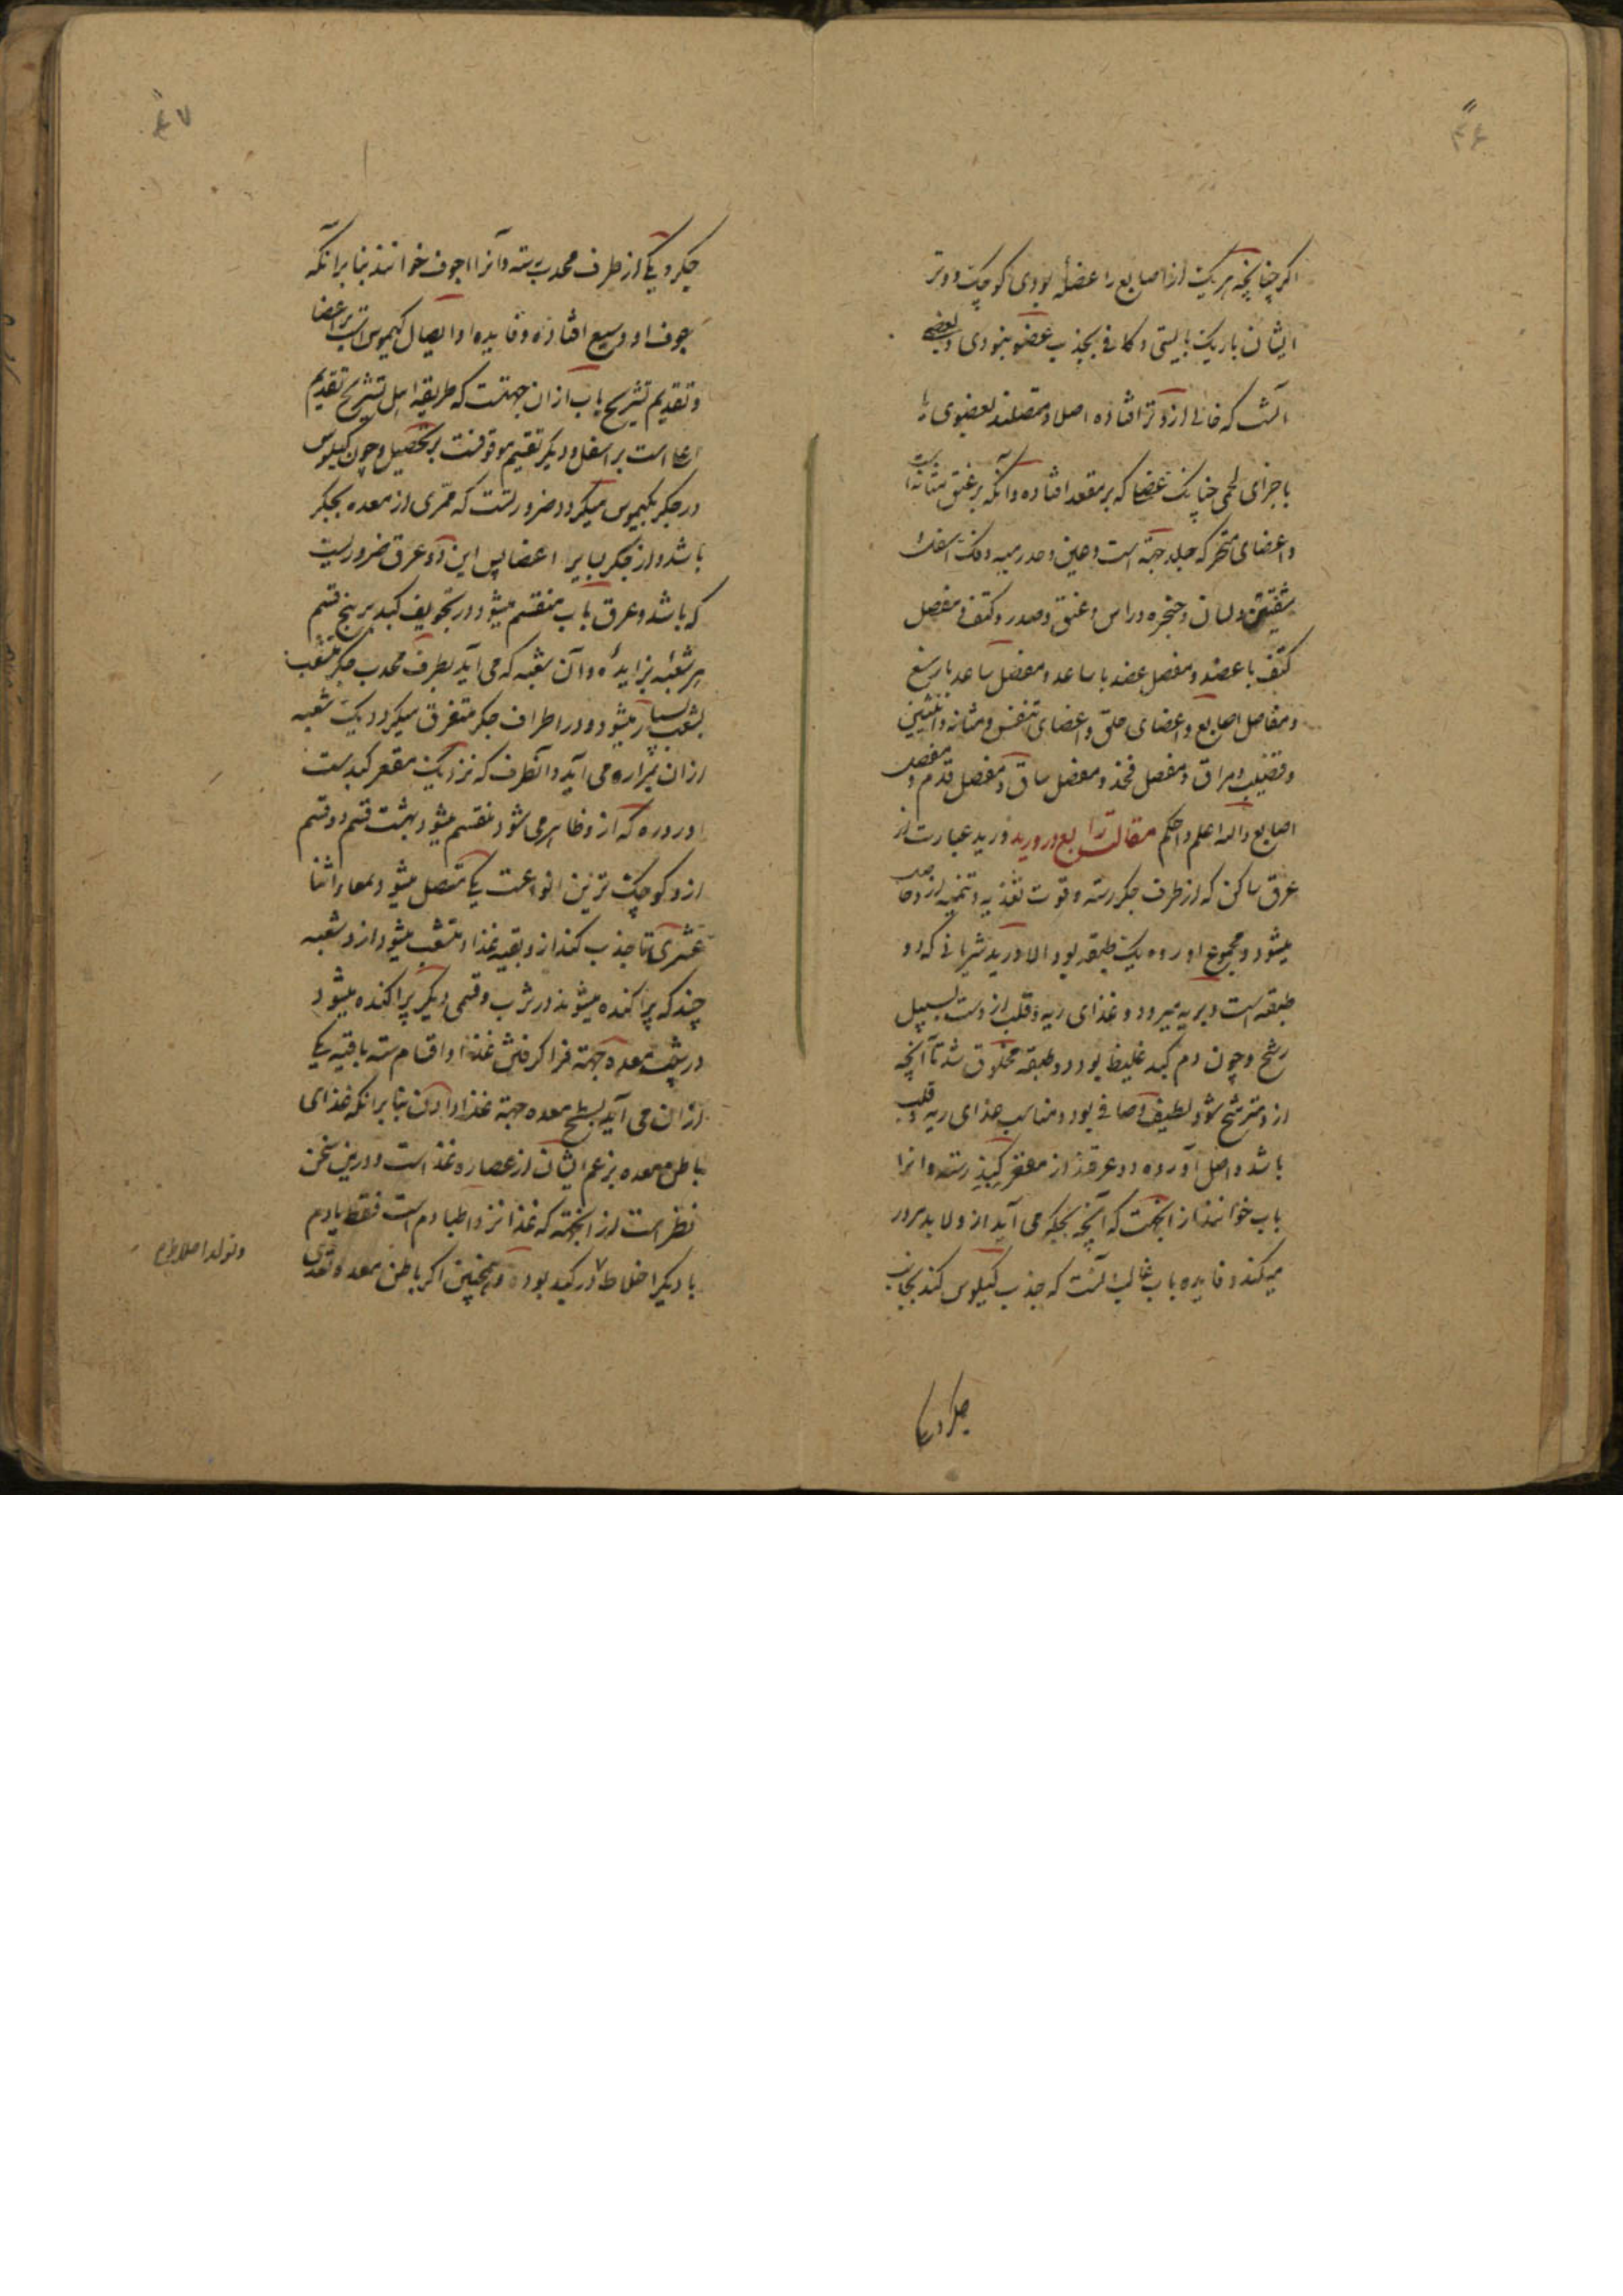 ۴۶
اکر چنانچه هر یک از اصابع را عضلهٔ بودی کوچک و وتر
ایشان باریک بایستی و کافی بجذب عضو نبودی و بعضی
آنست که خالی از وتر افتاده اصل و متصلند بعضوی یا
باجزای لحمی چنانک عضا که بر مقعد افتاده و آنکه بر عنق مثانه است
و اعضای متحرکه جلد جبهه است و عین و
شفتین و لسان و حنجره و راس و عنق و صدر و کتف و مفصل
کتف با عضد و مفصل عضد با ساعد و مفصل ساعد با رسغ
و مفاصل اصابع و اعضای حلق و اعضای تنفس و مثانه و انثیین
و قضیب و مراق و مفصل فخذ و مفصل ساق و مفصل قدم و مفصل
اصابع والله اعلم و احکم مقالت رابع در ورید ورید عبارت از
عرق ساکن که از طرف جکر رسته و قوت تغذیه و تنمیه ازو حاصل
میشود و مجموع اورده یک طبقه بود الا ورید شریانی که دو
طبقه است و بریه میرود و غذای ریه و قلب ازوست بسبیل
رشح و چون دم کبد غلیظ بود دو طبقه مخلوق شد تا آنچه
ازو مترشح شود لطیف و صافی بود و مناسب غذای ریه و قلب
باشد و اصل آورده دو عرقند از مقعر کبد رسته و انرا
باب خوانند از آنجهت که آنچه بجکر می آید ازو لابد مرور
میکند و فایده باب غالب آنست که جذب کیلوس کند بجانب
جکر و یکی
۴۷
جکر و یکی از طرف محدب رسته و آنرا اجوف خوانند بنا برانکه
جوف او وسیع افتاده و فایده او ایصال کیموس است بر اعضا
و تقدیم تشریح باب از ان جهتست که طریقه اهل تشریح تقدیم
اعلا است بر اسفل و دیکر تقسیم موقوفست بر تحصیل و چون کیلوس
در جکر بکیموس میکردد ضرورتست که ممری از معده بجکر
باشد و از جکر بسایر اعضا پس این دو عرق ضروریست
که باشد و عرق باب منقسم میشود در تجویف کبد بر پنج قسم
هر شعبه بزایدهٔ و آن شعبه که می آید بطرف محدب جکر منشعب
بشعب بسیار میشود و در اطراف جکر متفرق میکردد یک شعبه
ازان بمراره می آید و آنطرف که نزدیک مقعر کبدست
اورده که ازو ظاهر می شود منقسم میشود بهشت قسم دو قسم
ازو کوچک ترین انواعست یکی متصل میشود بمعاء اثنا
عشری تا جذب کند ازو بقیه غذا و منشعب میشود ازو شعبه
چند که پراکنده میشوند در ثرب و قسمی دیکر پراکنده میشود
در پشت معده جهة فرا کرفتن غذا و اقسام سته باقیه یکی
ازان می آید بسطح معده جهة غذا دادن بنا برانکه غذای
باطن معده بزعم ایشان از عصاره غذاست و درین سخن
نظر است از آنجهته که غذا نزد اطبا دم است فقط یا دم
با دیکر اخلاط در کبد بوده و همچنین اکر باطن معده تغذی
و تولد اخلاط